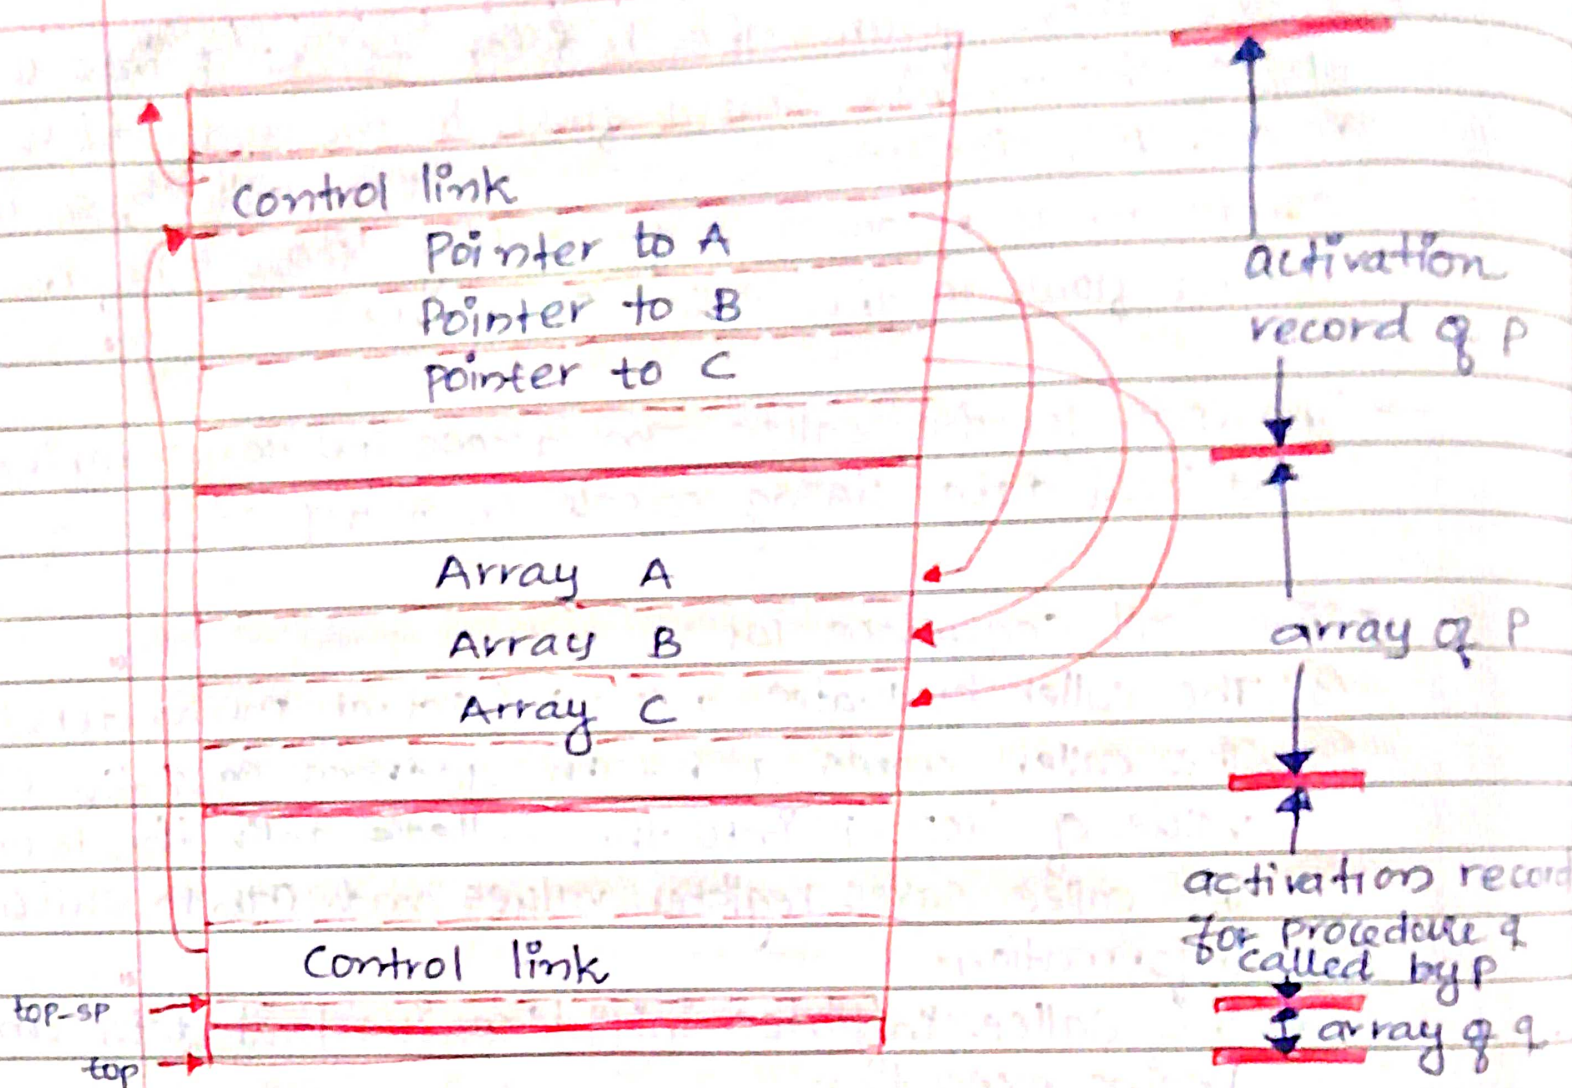 Control link
Pointer to A
Pointer to B
Pointer to C
Array A
Array B
Array C
Control link
top-sp
top
activation
record of P
array of P
activation record
for procedure q
called by p
array of q